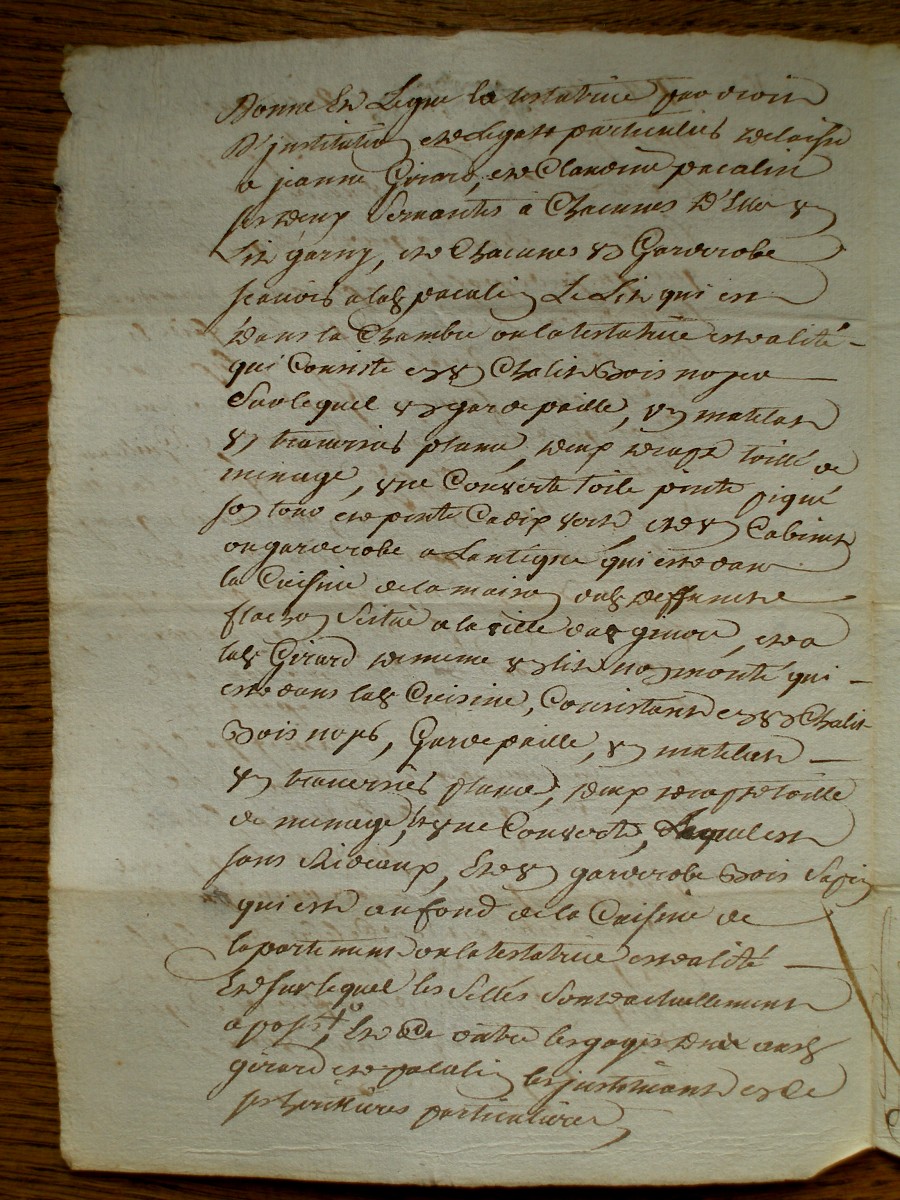 Donne et Legue la testatrice par droit
D'jnstitution et de legats particuliers delaisse
a jeanne Girard, et Claudine pacalin
ses deux Servantes a Chacunes D'Elles un
Lit garny, et a Chacunes un Garderobe
scavoir a lad pacalin Le Lit qui est
Dans la Chambre ou la testatrice est alité
qui Consiste en un Chalit Bois noyer
Sur lequel un gardepaille, un matelas
un traversier plume, deux draps toille de
menage, une Couverte toile peinte piqué
son tour de pente Cadix vert, et un Cabinet
ou garderobe a Lantique qui est dans
la Cuisine de la maison dud deffunt
flachon Scitué a la ville dud, et a
lad Girard de meme un lit non monté qui
est dans lad Cuisine, Consistant en un Chalit
Bois noyer, Gardepaille, un matelas
un traversier plume, deux draps toille
de menage, et une Couverte, Lequel est
sans Rideaux, Et un garderobe Bois Sapin
qui est au fond de la Cuisine de
lapartement ou la testatrice est alité
Et sur lequel les Sellés Sont actuellement
aposés +, Et ce outre les gages desd
girard et pacalin les jnstituant en ce
ses heritieres particulieres